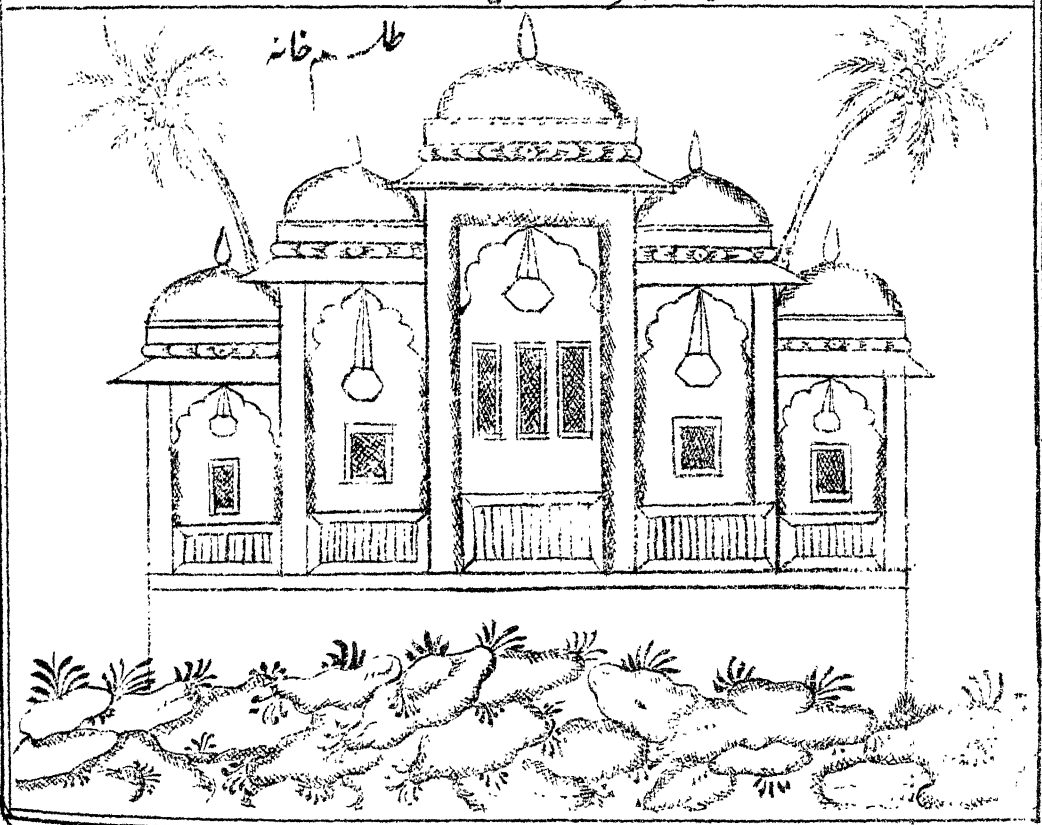 طلسم خانہ